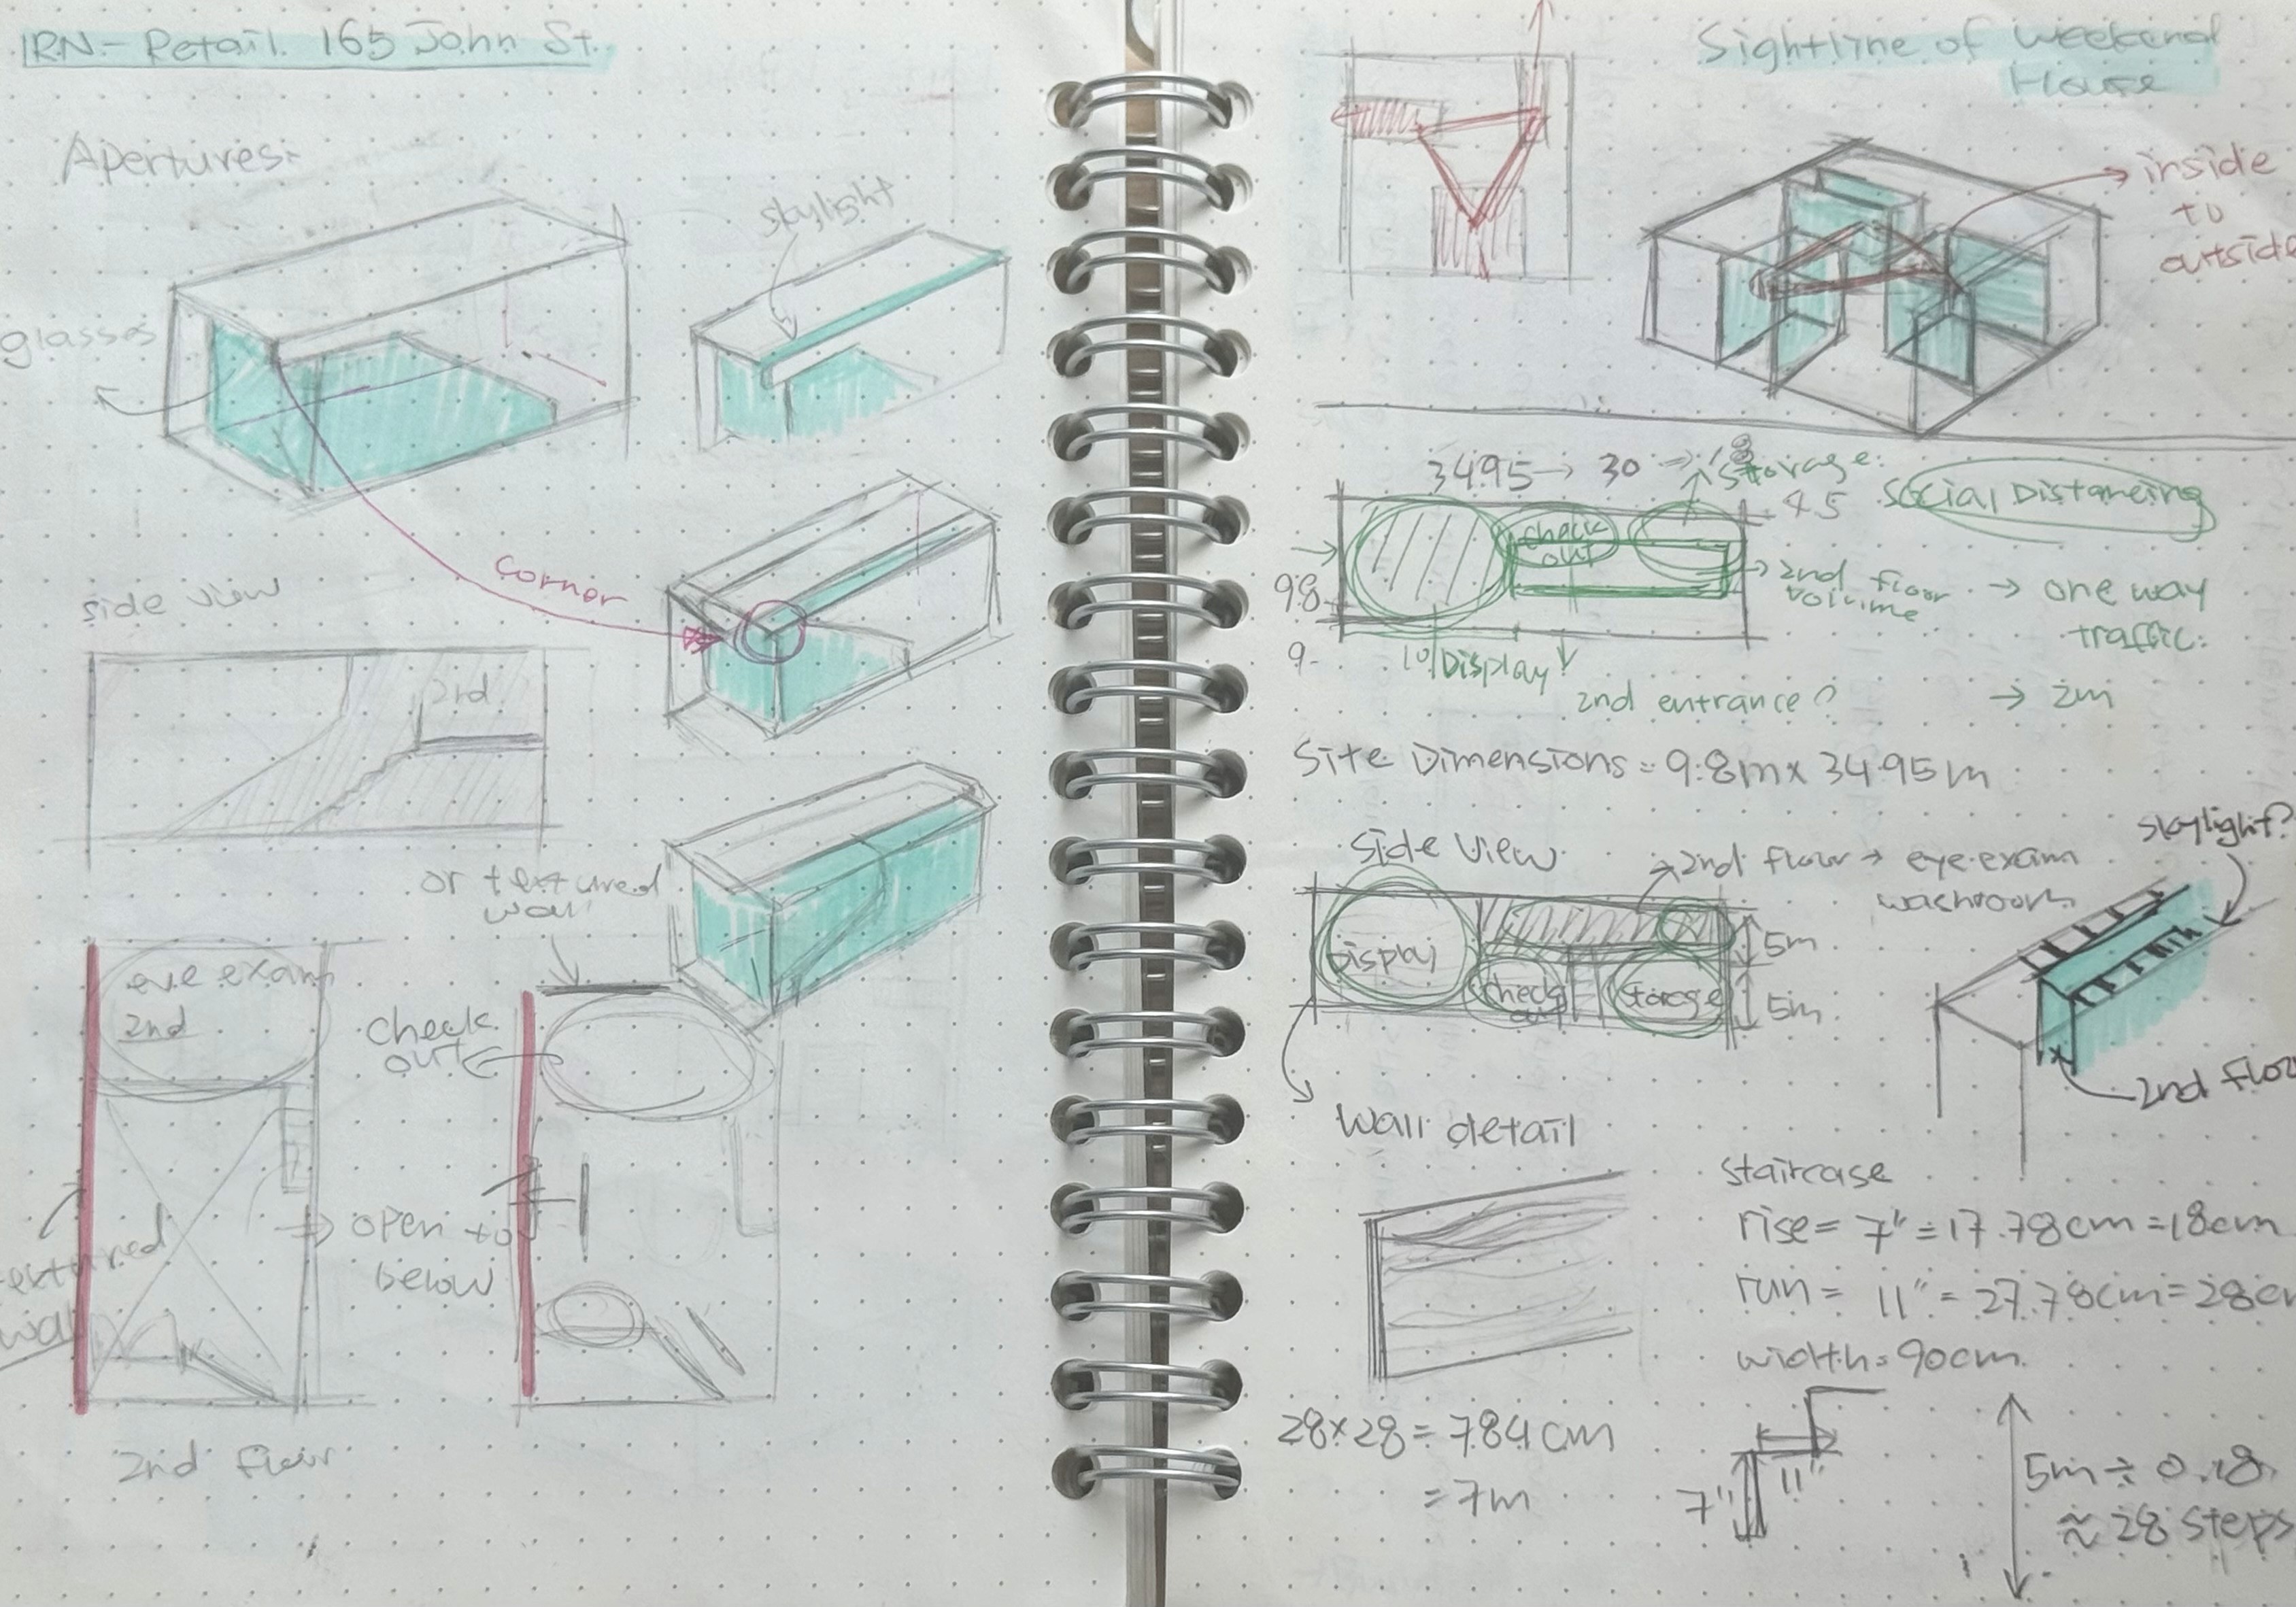 IRN - Retail. 165 John St.
Apertures:
skylight
glasses
corner
side view
2rd
or textured
wall
eye exam
2nd
check
out
open to
below
textured
wall
2nd floor
Sightline of Weekend
House
inside
to
outside
3495 → 30 →
Storage:
4.5
Social Distancing
check
out
98
9.
10
Display
2nd floor
volume
→ one way
traffic.
2nd entrance?
→ 2m
Site Dimensions = 9.8m x 34.95m
side view
2nd floor → eye exam
washroom
skylight?
Display
check
out
storage
5m
5m
2nd floor
wall detail
staircase
rise = 7" = 17.78cm = 18cm
run = 11" = 27.78cm = 28cm
width = 90cm.
28 x 28 = 784 cm
= 7m
11"
7"
5m ÷ 0.18
≈ 28 steps